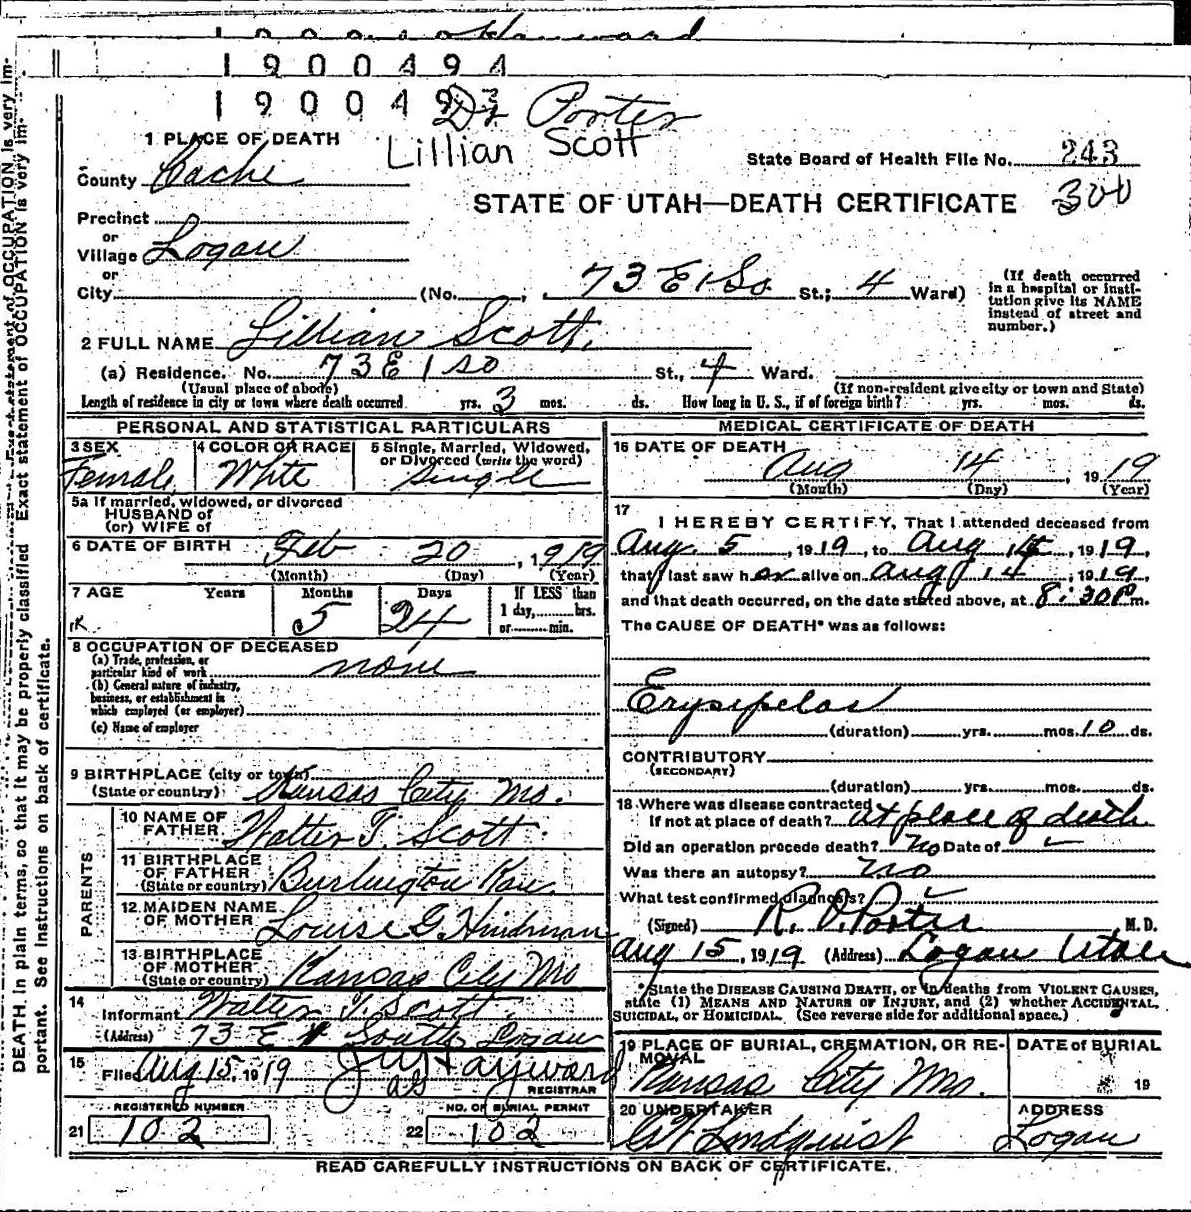 1900494
190049
Dr Porter
Lillian Scott
1 PLACE OF DEATH
State Board of Health File No. 243
300
County Cache
STATE OF UTAH—DEATH CERTIFICATE
Precinct
or
Village Logan
or
City (No. , 73 E 1 So St.; 4 Ward)
(If death occurred in a hospital or institution give its NAME instead of street and number.)
2 FULL NAME Lillian Scott.
(a) Residence. No. 73 E 1 so St., 4 Ward.
(Usual place of abode) (If non-resident give city or town and State)
Length of residence in city or town where death occurred yrs. 3 mos. ds. How long in U. S., if of foreign birth? yrs. mos. ds.
PERSONAL AND STATISTICAL PARTICULARS
3 SEX Female
4 COLOR OR RACE White
5 Single, Married, Widowed, or Divorced (write the word) Single
5a If married, widowed, or divorced
HUSBAND of
(or) WIFE of
6 DATE OF BIRTH Feb 20, 1919
(Month) (Day) (Year)
7 AGE Years Months 5 Days 24
If LESS than
1 day, hrs.
or min.
8 OCCUPATION OF DECEASED
(a) Trade, profession, or
particular kind of work none
(b) General nature of industry,
business, or establishment in
which employed (or employer)
(c) Name of employer
9 BIRTHPLACE (city or town)
(State or country) Kansas City Mo.
PARENTS
10 NAME OF
FATHER Walter T. Scott.
11 BIRTHPLACE
OF FATHER
(State or country) Burlington Kan.
12 MAIDEN NAME
OF MOTHER Louise G. Hindman
13 BIRTHPLACE
OF MOTHER
(State or country) Kansas City Mo
14
Informant Walter T. Scott.
(Address) 73 E 1 South Logan
15
Filed Aug 15, 1919 J W Hayward
REGISTRAR
REGISTERED NUMBER
21 102
NO. OF BURIAL PERMIT
22 102
MEDICAL CERTIFICATE OF DEATH
16 DATE OF DEATH
Aug 14, 1919
(Month) (Day) (Year)
17
I HEREBY CERTIFY, That I attended deceased from
Aug 5, 1919, to Aug 14, 1919,
that I last saw her alive on Aug 14, 1919,
and that death occurred, on the date stated above, at 8:30 P m.
The CAUSE OF DEATH* was as follows:
Erysipelas
(duration) yrs. mos. 10 ds.
CONTRIBUTORY
(SECONDARY)
(duration) yrs. mos. ds.
18 Where was disease contracted
If not at place of death? at place of death
Did an operation precede death? No Date of
Was there an autopsy? No
What test confirmed diagnosis?
(Signed) R. O. Porter M. D.
Aug 15, 1919 (Address) Logan Utah
*State the DISEASE CAUSING DEATH, or in deaths from VIOLENT CAUSES,
state (1) MEANS AND NATURE OF INJURY, and (2) whether ACCIDENTAL,
SUICIDAL, or HOMICIDAL. (See reverse side for additional space.)
19 PLACE OF BURIAL, CREMATION, OR REMOVAL
Kansas City Mo.
DATE OF BURIAL
19
20 UNDERTAKER
Lindquist
ADDRESS
Logan
READ CAREFULLY INSTRUCTIONS ON BACK OF CERTIFICATE.
DEATH in plain terms, so that it may be properly classified. Exact statement of OCCUPATION is very im-
portant. See instructions on back of certificate.